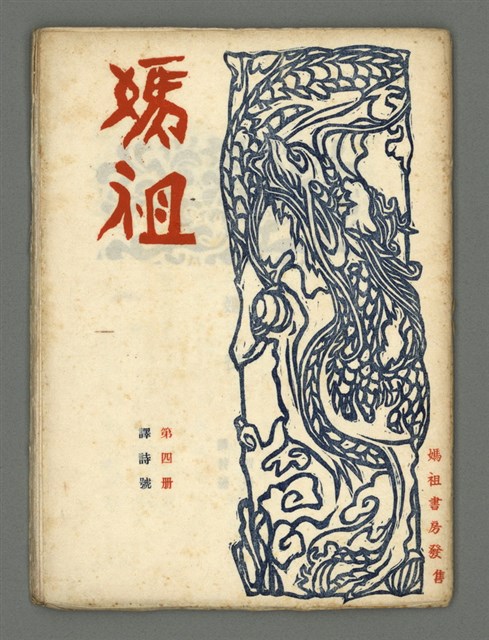 媽祖
第四册
譯詩號
媽祖書房發售